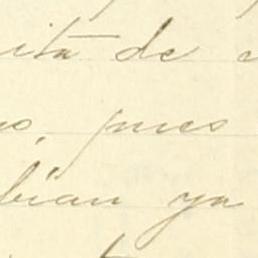 ita de
o, pues
bian ya